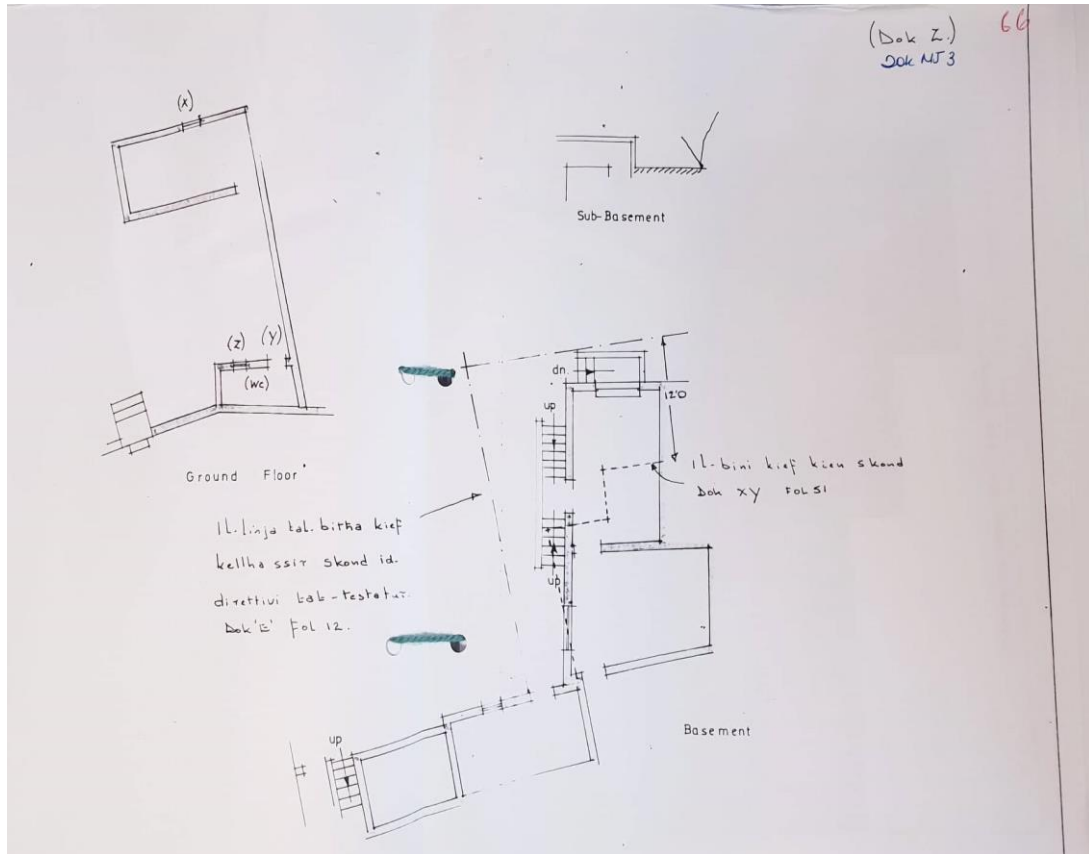 66
(Dok Z.)
Dok NJ3
(x)
Sub-Basement
(z)
(y)
(wc)
Ground Floor
dn.
up
12'0
Il-bini kief kien skond
Dok XY FOL 51
Il-linja tal-bitħa kief
kellha ssir skond id-
direttivi tat-testatur.
Dok 'E' Fol 12.
up
Basement
up